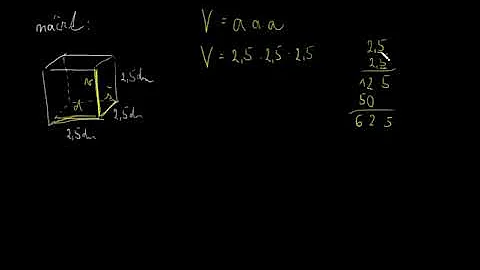 náčrt:
V = a·a·a
V = 2,5 · 2,5 · 2,5
2,5
2,5
12 5
50
6 2 5
v
2,5 dm
d
š
2,5 dm
2,5 dm